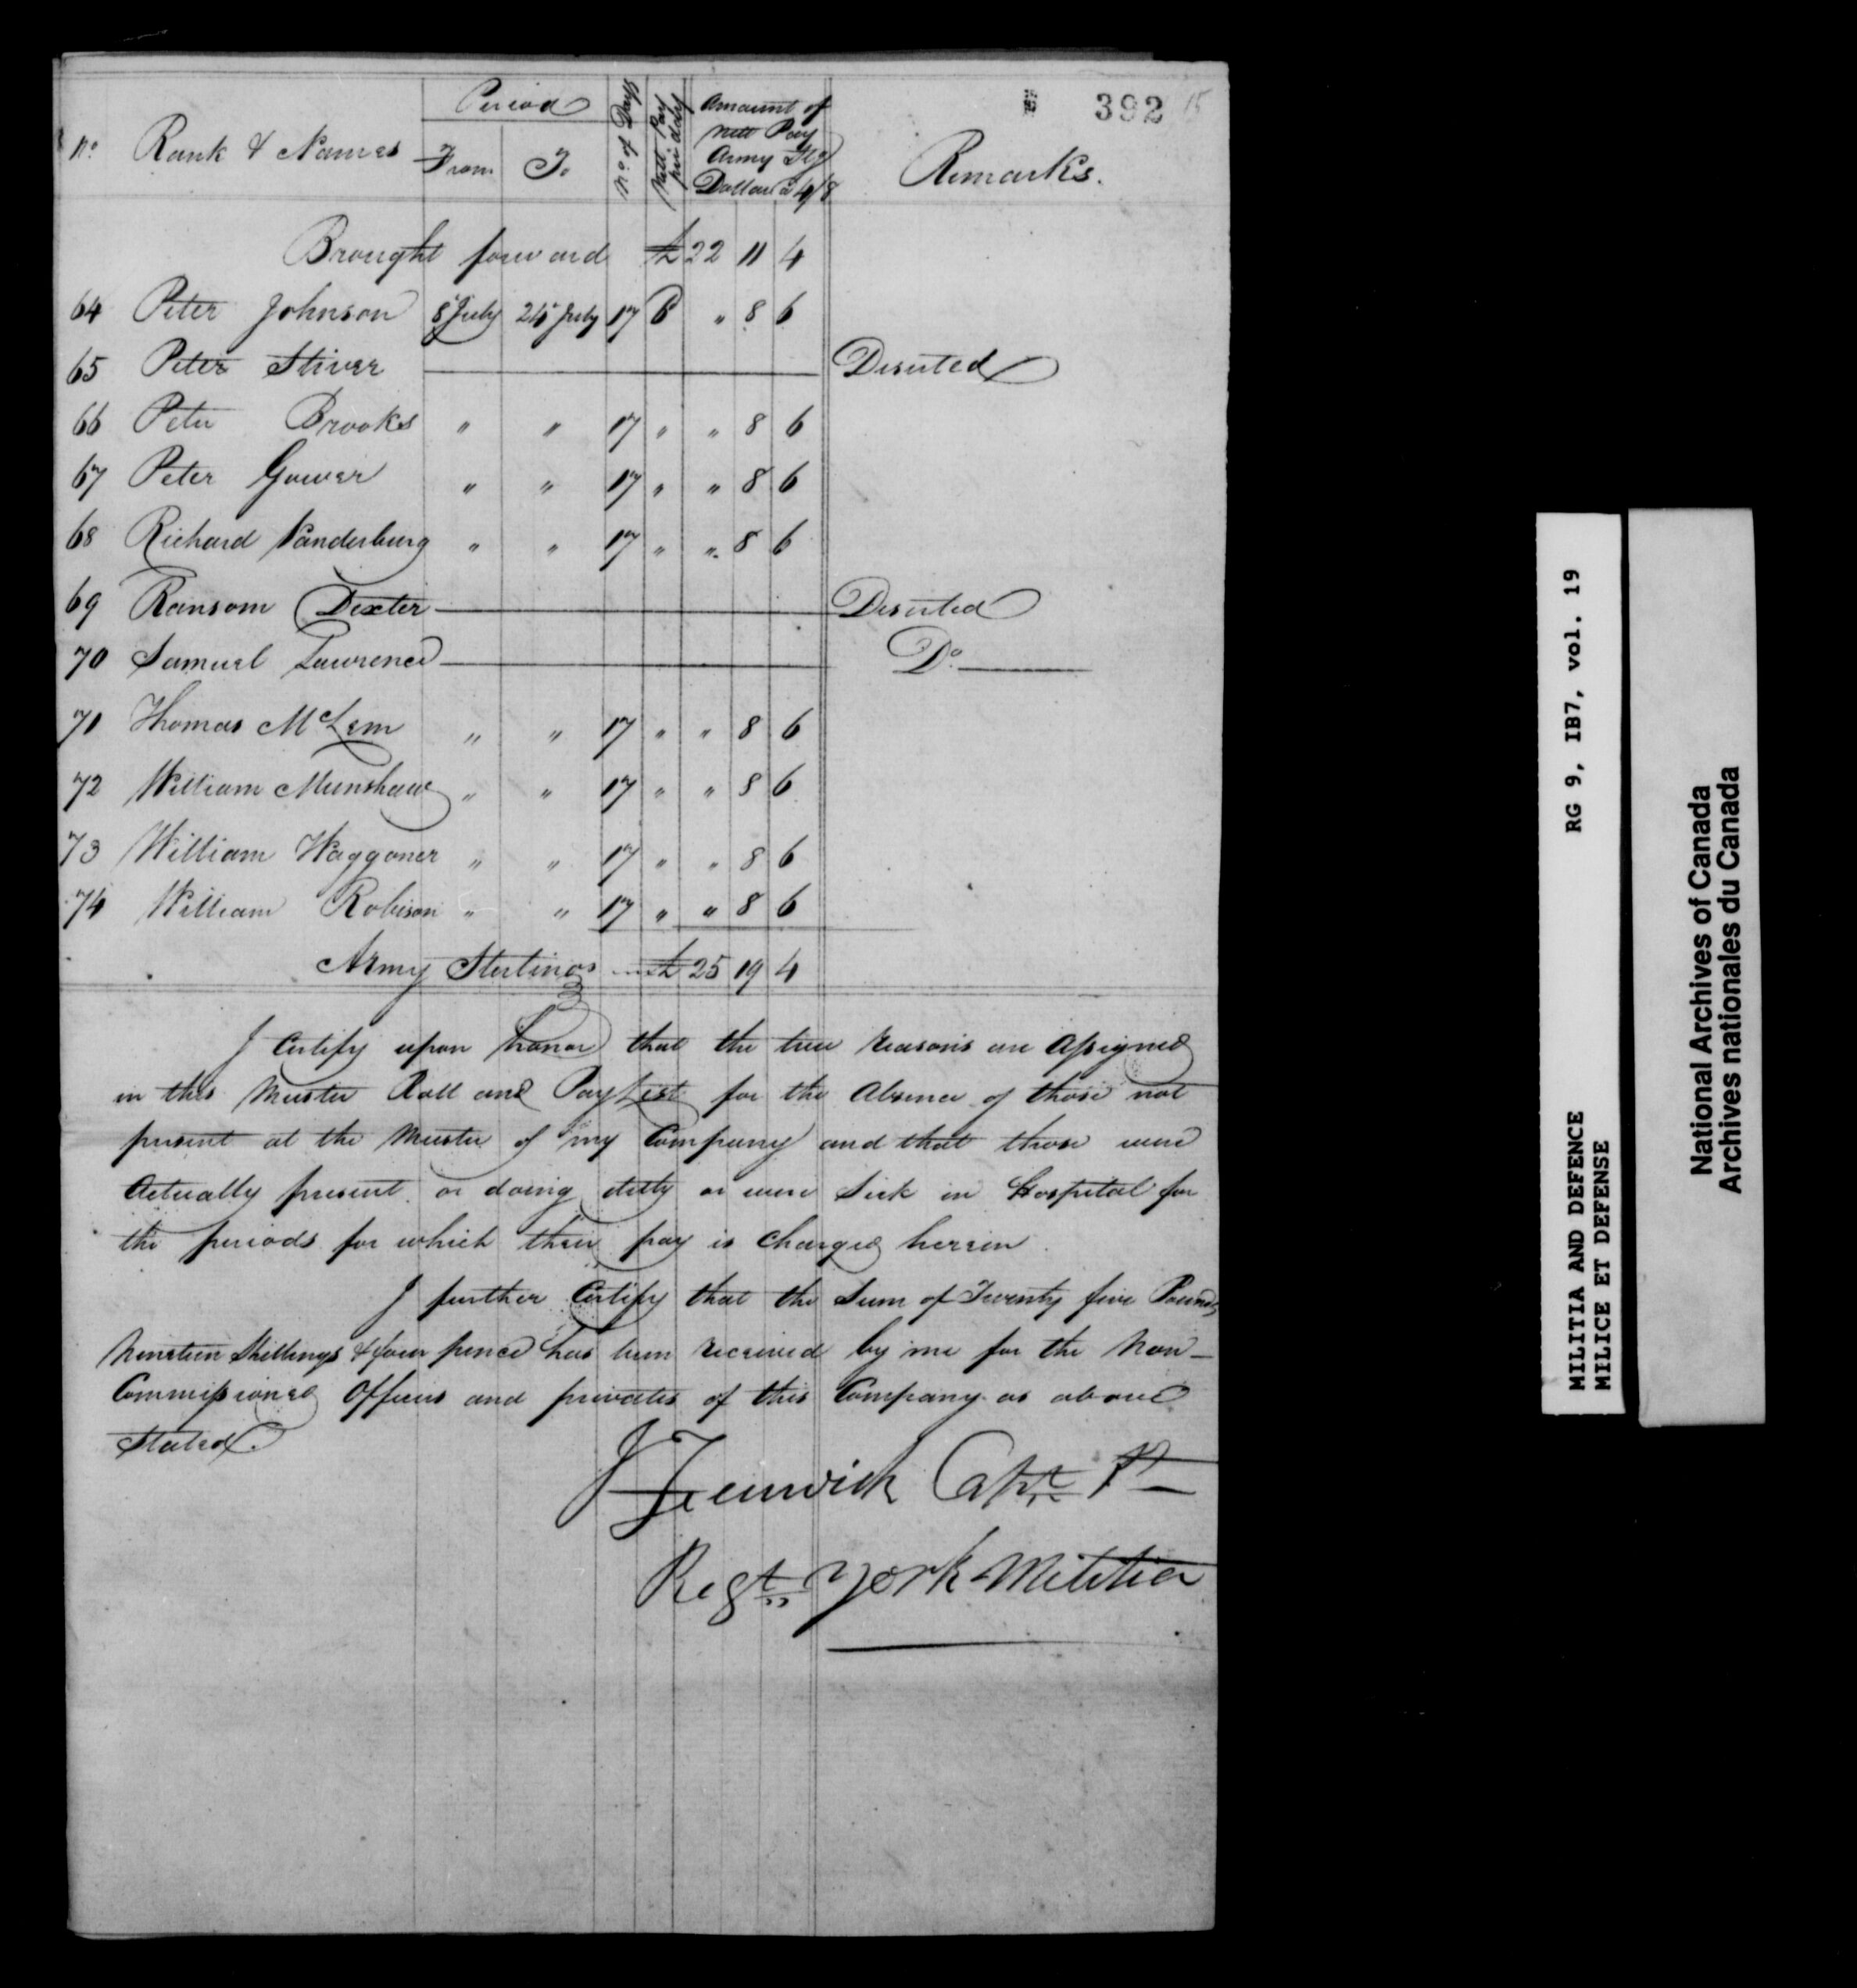 392 15
No. Rank & Names Period From To No. of Days Nett Pay per day Amount of Nett Pay Army Stg Dollar @ 4/8 Remarks.
Brought forward £ 22 11 4
64 Peter Johnson 8 July 24 July 17 6 " 8 6
65 Peter Stiver Deserted
66 Peter Brooks " " 17 " " 8 6
67 Peter Gower " " 17 " " 8 6
68 Richard Vanderburg " " 17 " " 8 6
69 Ransom Dexter Deserted
70 Samuel Lawrence Do.
71 Thomas McLem " " 17 " " 8 6
72 William Munshaw " " 17 " " 8 6
73 William Waggoner " " 17 " " 8 6
74 William Robison " " 17 " " 8 6
Army Sterling £ 25 19 4
I Certify upon honor that the true reasons are assigned
in this Muster Roll and Pay List for the Absence of those not
present at the Muster of my Company and that those were
Actually present or doing duty or were Sick in Hospital for
the periods for which their pay is Charged herein.
I further Certify that the Sum of Twenty five Pounds
Nineteen Shillings & four pence has been received by me for the Non-
Commissioned Officers and privates of this Company as above
Stated.
J Fenwick Capt. 1st
Regt. York Militia
MILITIA AND DEFENCE RG 9, IB7, vol. 19
MILICE ET DEFENSE
National Archives of Canada
Archives nationales du Canada